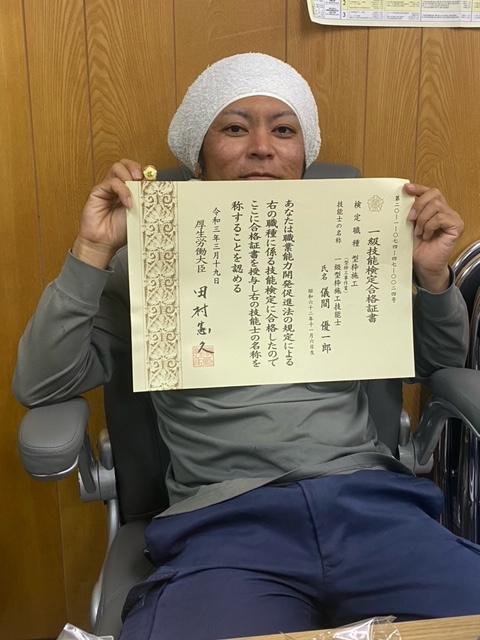 第二〇-一-〇七四-四七-〇〇二四号
一級技能検定合格証書
検定職種 型枠施工
(型枠工事作業)
技能士の名称 一級型枠施工技能士
氏名 儀間 優一郎
昭和六十二年十一月六日生
あなたは職業能力開発促進法の規定による
右の職種に係る技能検定に合格したので
ここに合格証書を授与し右の技能士の名称を
称することを認める
令和三年三月十九日
厚生労働大臣 田村憲久